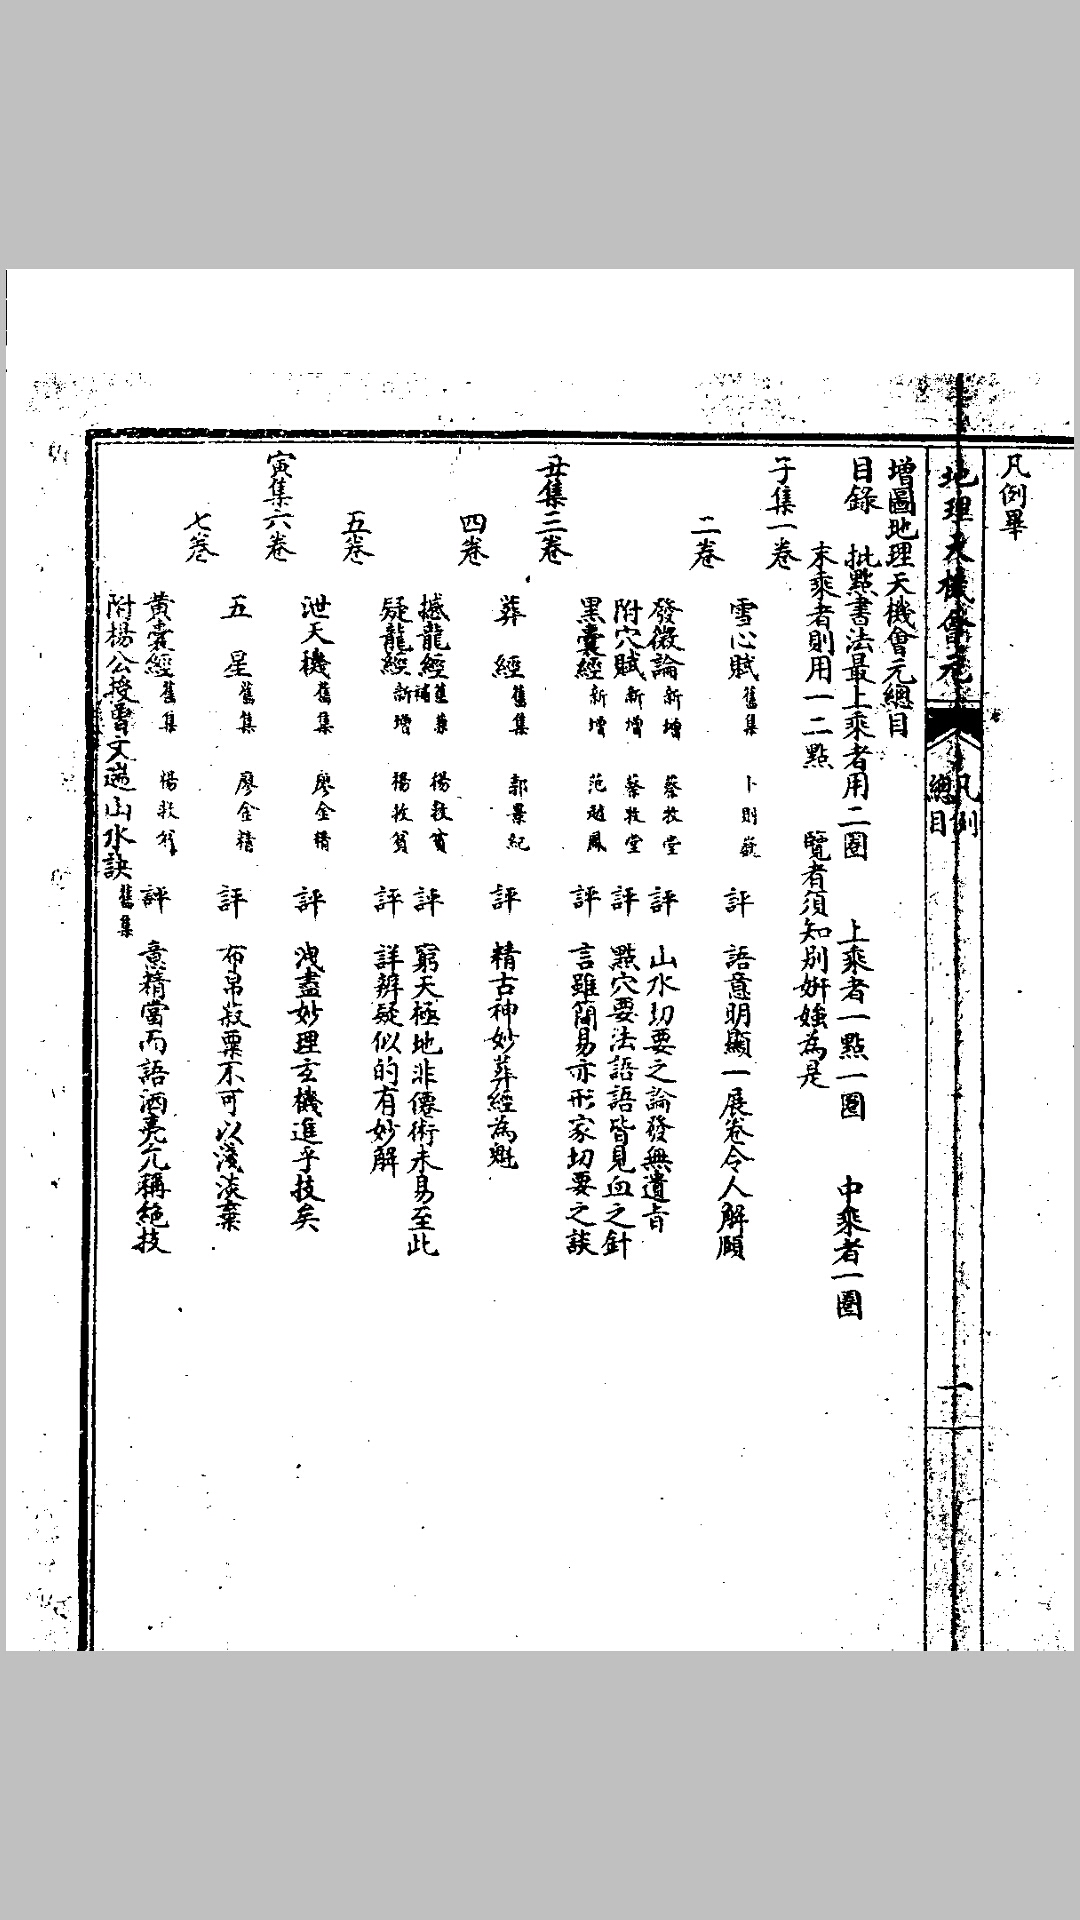 凡例畢
地理天機會元
凡例
總目
一
增圖地理天機會元總目
目錄 批點書法最上乘者用二圈 上乘者一點一圈 中乘者一圈
末乘者則用一二點 覽者須知別妍媸為是
子集一卷
雪心賦 舊集 卜則巍 評 語意明顯一展卷令人解頤
二卷
發微論 新增 蔡牧堂 評 山水切要之論發無遺旨
附穴賦 新增 蔡牧堂 評 點穴要法語語皆見血之針
黑囊經 新增 范越鳳 評 言雖簡易亦形家切要之談
丑集三卷
葬經 舊集 郭景純 評 精古神妙葬經為魁
四卷
撼龍經 舊集補 楊救貧 評 窮天極地非僊術未易至此
疑龍經 新增 楊救貧 評 詳辨疑似的有妙解
五卷
泄天機 舊集 廖金精 評 洩盡妙理玄機進乎技矣
寅集六卷
五星 舊集 廖金精 評 布帛菽粟不可以淺淡棄
七卷
黃囊經 舊集 楊救貧 評 意精當而語洒亮允稱絕技
附楊公授曾文遄山水訣 舊集